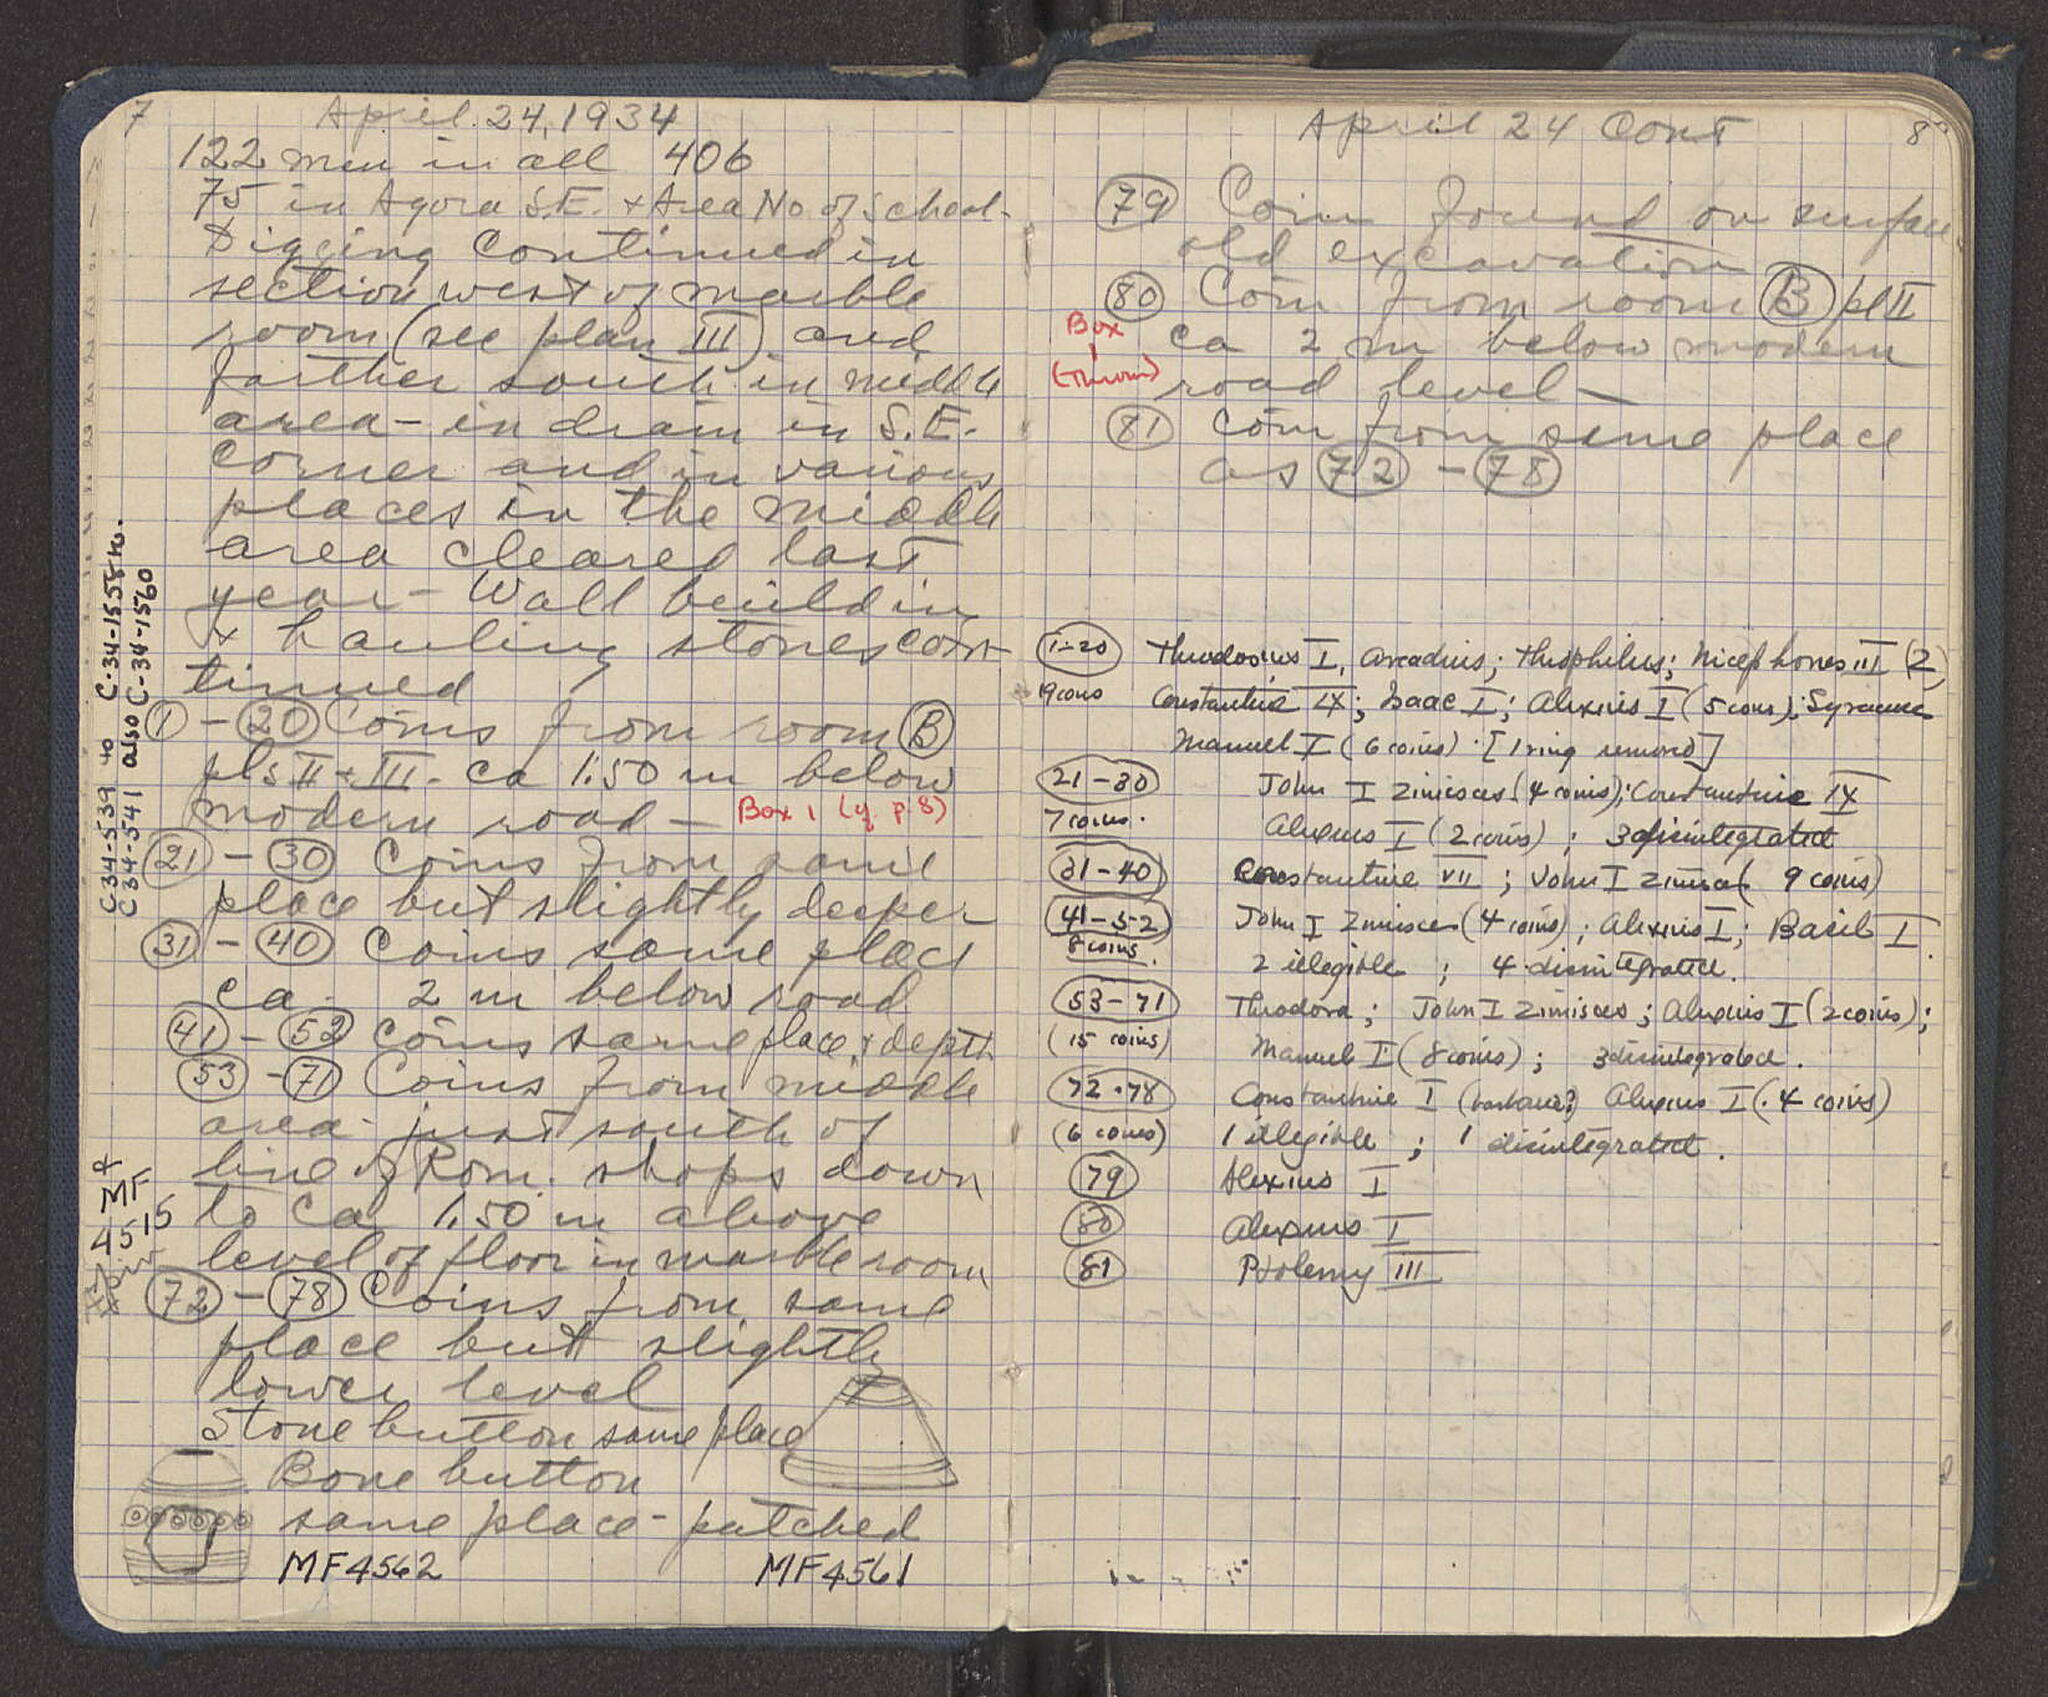 7
April 24, 1934
122 men in all 406
75 in Agora S.E. + Area No of School-
Digging continued in
section west of marble
room (see plan III) and
farther south in middle
area - in drain in S.E.
corner and in various
places in the middle
area cleared last
year - Wall building
+ hauling stones con-
tinued
1 - 20 Coins from room B
pls II + III - ca 1.50 m below
modern road - Box 1 (cf. p. 8)
21 - 30 Coins from same
place but slightly deeper
31 - 40 Coins same place
ca. 2 m below road
41 - 52 Coins same place + depth
53 - 71 Coins from middle
area - just south of
line of Rom. shops down
to ca 1.50 m above
level of floor in marble room
72 - 78 Coins from same
place but slightly
lower level
Stone button same place
Bone button
same place - patched
MF4562 MF4561
C-34-539 to C-34-1558 bis.
C-34-541 also C-34-1560
&
MF
4515
April 24 Cont
8
79 Coin found on surface
old excavation
80 Coin from room B pl II
Box
1
(Throw)
ca 2 m below modern
road level -
81 Coin from same place
as 72 - 78
1-20 Theodosius I, Arcadius; Theophilus; Nicephorus III (2)
19 coins Constantine IX; Isaac I; Alexius I (5 coins); Syracuse
Manuel I (6 coins) . [1 ring removed]
21-30 John I Zimisces (4 coins); Constantine IX
7 coins. Alexius I (2 coins) ; 3 disintegrated
31-40 Constantine VII ; John I Zimisces ( 9 coins)
41-52 John I Zimisces (4 coins) ; Alexius I; Basil I
8 coins. 2 illegible ; 4 disintegrated.
53-71 Theodora; John I Zimisces ; Alexius I (2 coins);
(15 coins) Manuel I (8 coins) ; 3 disintegrated.
72-78 Constantine I (barbarous?) Alexius I (4 coins)
(6 coins) 1 illegible ; 1 disintegrated.
79 Alexius I
80 Alexius I
81 Ptolemy III